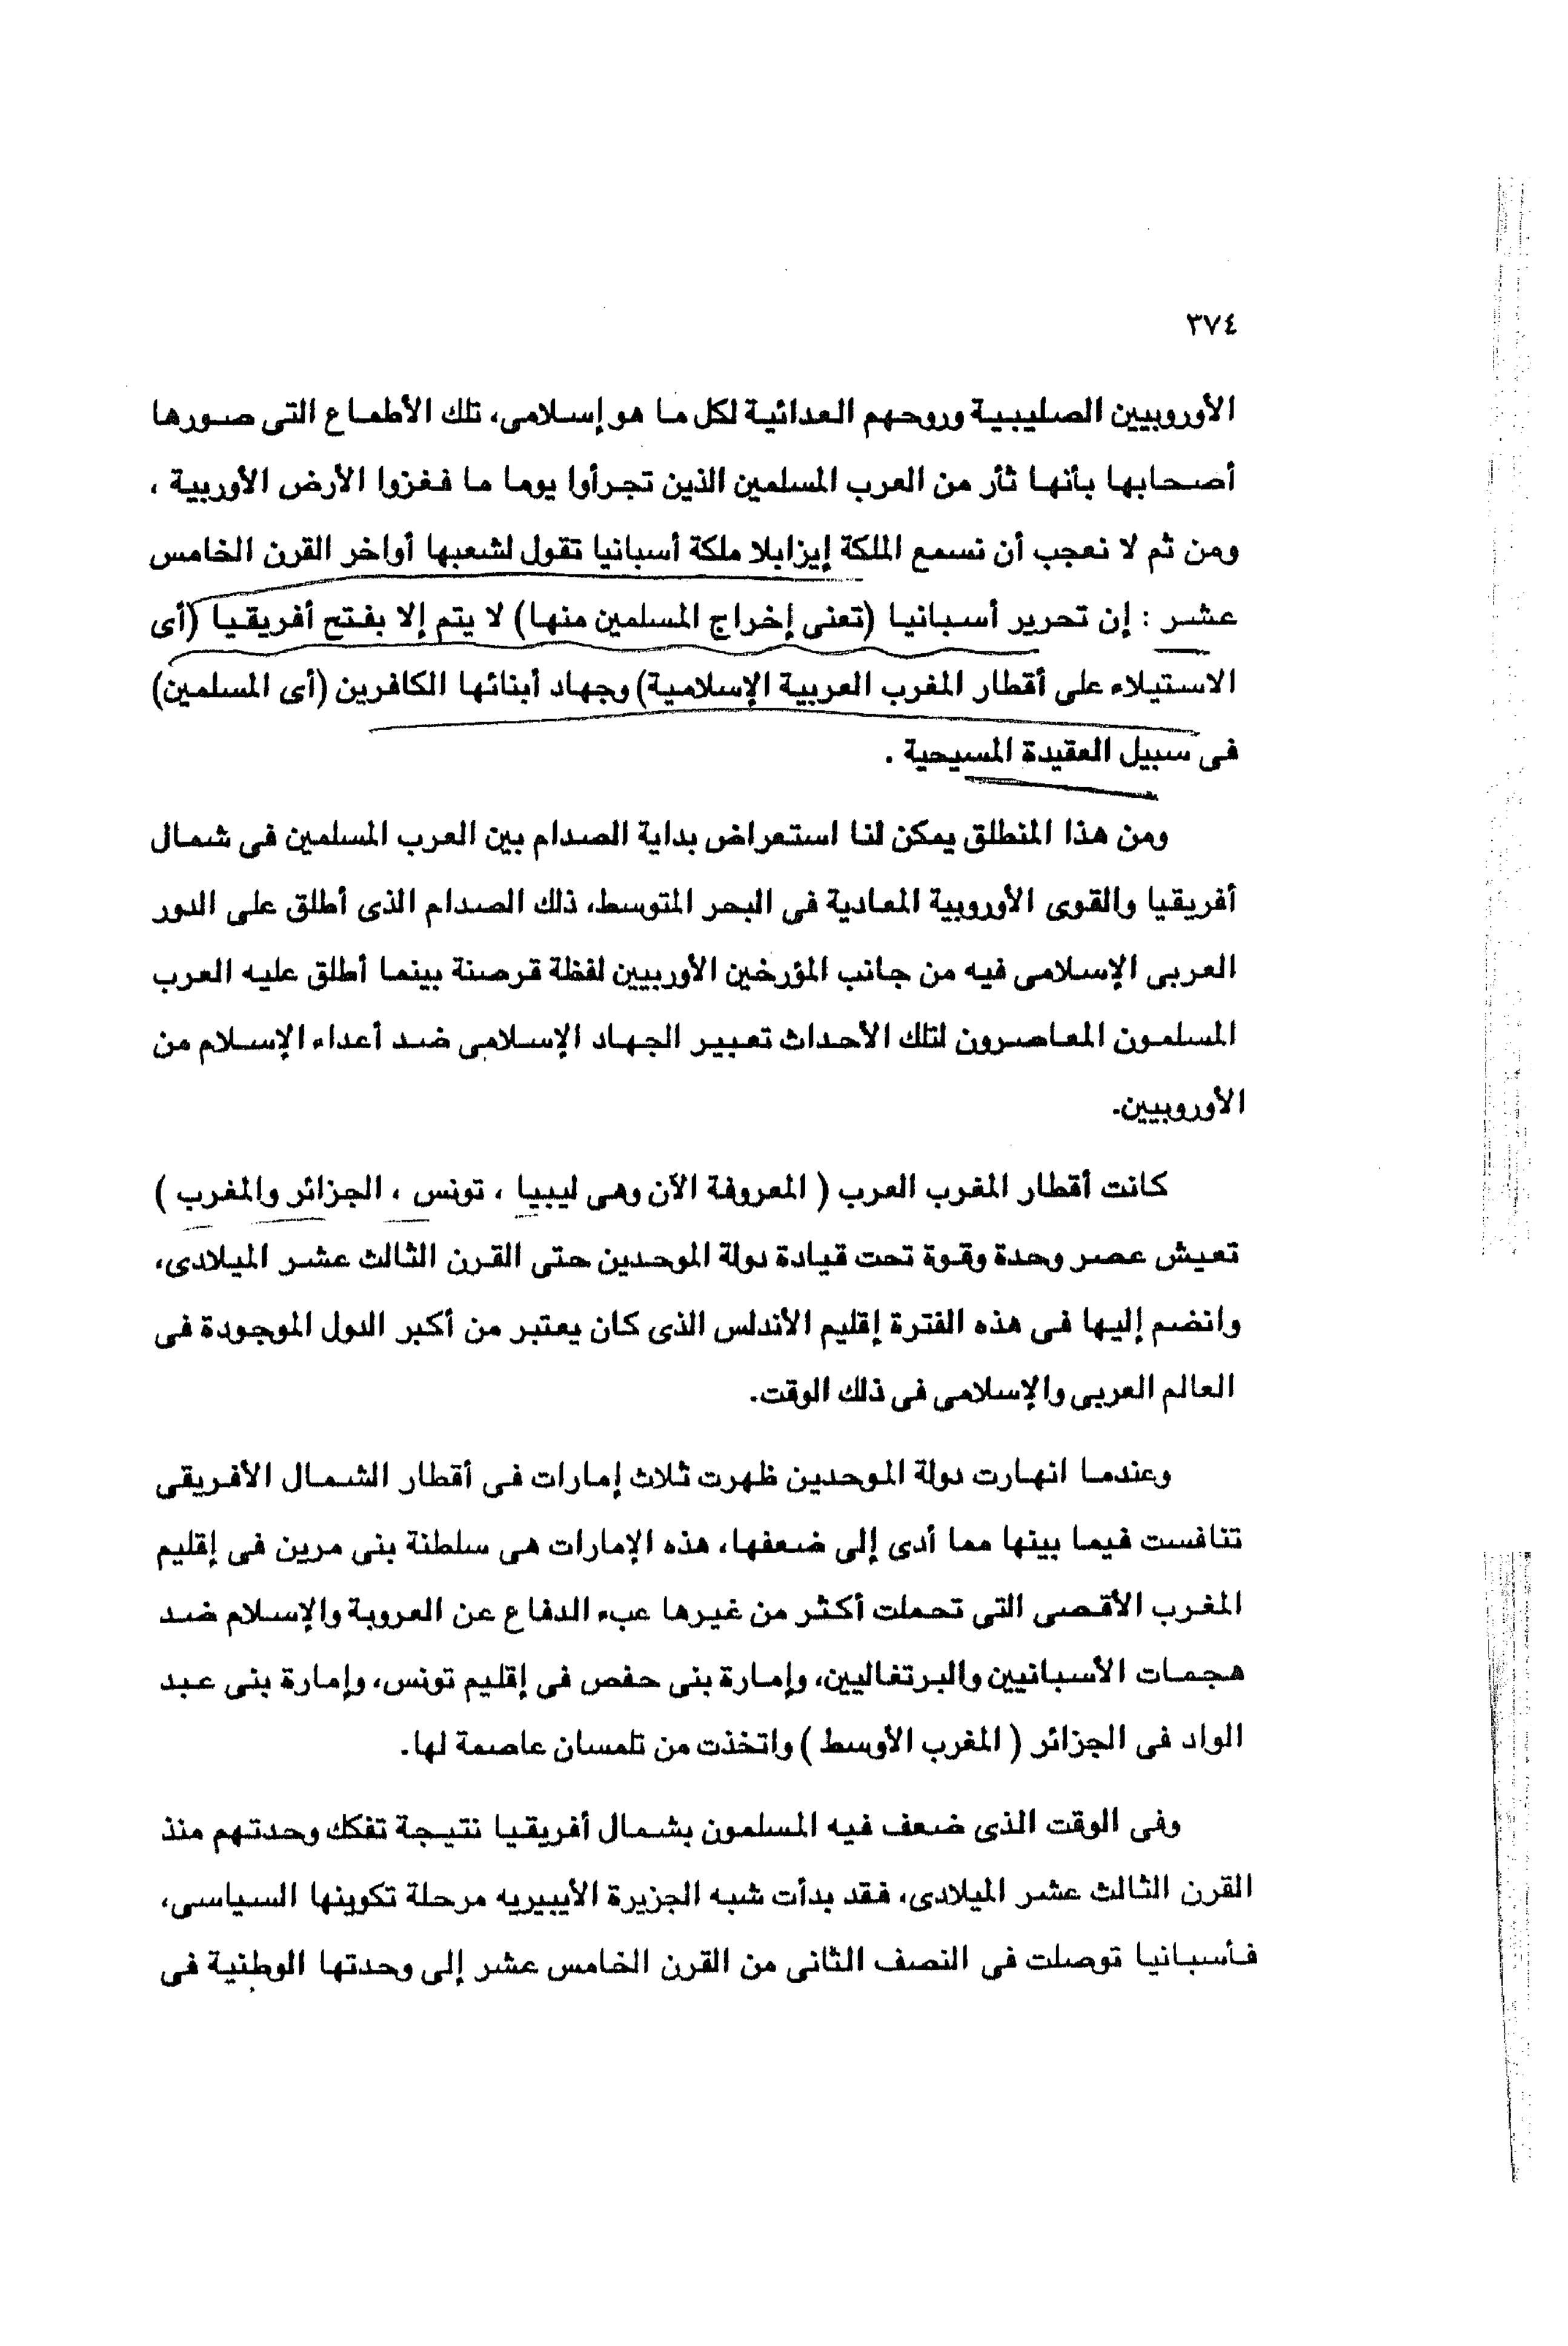 ٣٧٤
الأوروبيين الصليبية وروحهم العدائية لكل ما هو إسلامى، تلك الأطماع التى صورها
أصحابها بأنها ثأر من العرب المسلمين الذين تجرأوا يوما ما فغزوا الأرض الأوربية ،
ومن ثم لا نعجب أن نسمع الملكة إيزابلا ملكة أسبانيا تقول لشعبها أواخر القرن الخامس
عشر : إن تحرير أسبانيا (تعنى إخراج المسلمين منها) لا يتم إلا بفتح أفريقيا (أى
الاستيلاء على أقطار المغرب العربية الإسلامية) وجهاد أبنائها الكافرين (أى المسلمين)
فى سبيل العقيدة المسيحية .
ومن هذا المنطلق يمكن لنا استعراض بداية الصدام بين العرب المسلمين فى شمال
أفريقيا والقوى الأوروبية المعادية فى البحر المتوسط، ذلك الصدام الذى أطلق على الدور
العربى الإسلامى فيه من جانب المؤرخين الأوربيين لفظة قرصنة بينما أطلق عليه العرب
المسلمون المعاصرون لتلك الأحداث تعبير الجهاد الإسلامى ضد أعداء الإسلام من
الأوروبيين.
كانت أقطار المغرب العرب ( المعروفة الآن وهى ليبيا ، تونس ، الجزائر والمغرب )
تعيش عصر وحدة وقوة تحت قيادة دولة الموحدين حتى القرن الثالث عشر الميلادى،
وانضم إليها فى هذه الفترة إقليم الأندلس الذى كان يعتبر من أكبر الدول الموجودة فى
العالم العربى والإسلامى فى ذلك الوقت.
وعندما انهارت دولة الموحدين ظهرت ثلاث إمارات فى أقطار الشمال الأفريقى
تنافست فيما بينها مما أدى إلى ضعفها، هذه الإمارات هى سلطنة بنى مرين فى إقليم
المغرب الأقصى التى تحملت أكثر من غيرها عبء الدفاع عن العروبة والإسلام ضد
هجمات الأسبانيين والبرتغاليين، وإمارة بنى حفص فى إقليم تونس، وإمارة بنى عبد
الواد فى الجزائر ( المغرب الأوسط ) واتخذت من تلمسان عاصمة لها.
وفى الوقت الذى ضعف فيه المسلمون بشمال أفريقيا نتيجة تفكك وحدتهم منذ
القرن الثالث عشر الميلادى، فقد بدأت شبه الجزيرة الأيبيريه مرحلة تكوينها السياسى،
فأسبانيا توصلت فى النصف الثانى من القرن الخامس عشر إلى وحدتها الوطنية فى